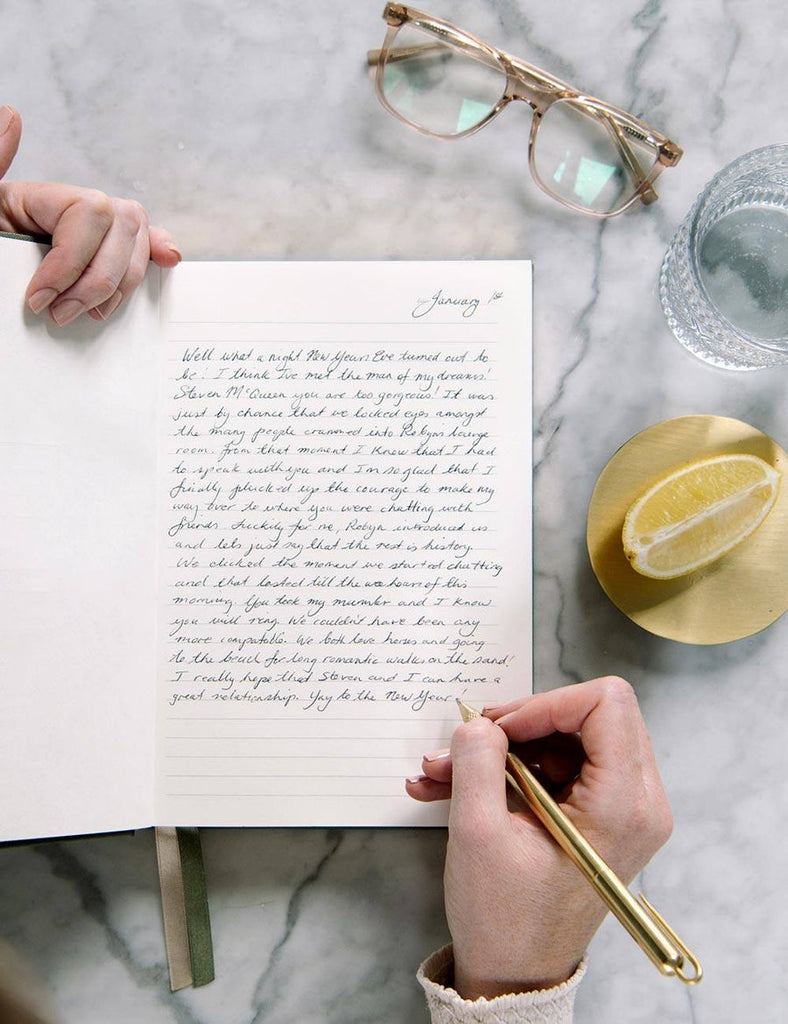 January 1st
Well what a night New Years Eve turned out to
be! I think I've met the man of my dreams!
Steven McQueen you are too gorgeous! It was
just by chance that we locked eyes amongst
the many people crammed into Robyn's lounge
room. From that moment I knew that I had
to speak with you and I'm so glad that I
finally plucked up the courage to make my
way over to where you were chatting with
friends. Luckily for me, Robyn introduced us
and lets just say that the rest is history.
We clicked the moment we started chatting
and that lasted till the wee hours of this
morning. You took my number and I know
you will ring. We couldn't have been any
more compatable. We both love horses and going
to the beach for long romantic walks on the sand!
I really hope that Steven and I can have a
great relationship. Yay to the New Year!